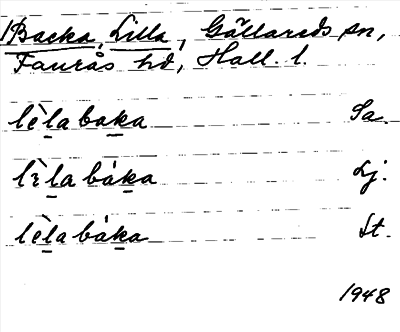 Backa, Lilla, Gällareds sn,
Faurås hd, Hall. l.
lèlabaka Sa.
lɛ̀la bàka Lj.
lèla bàka St.
1948